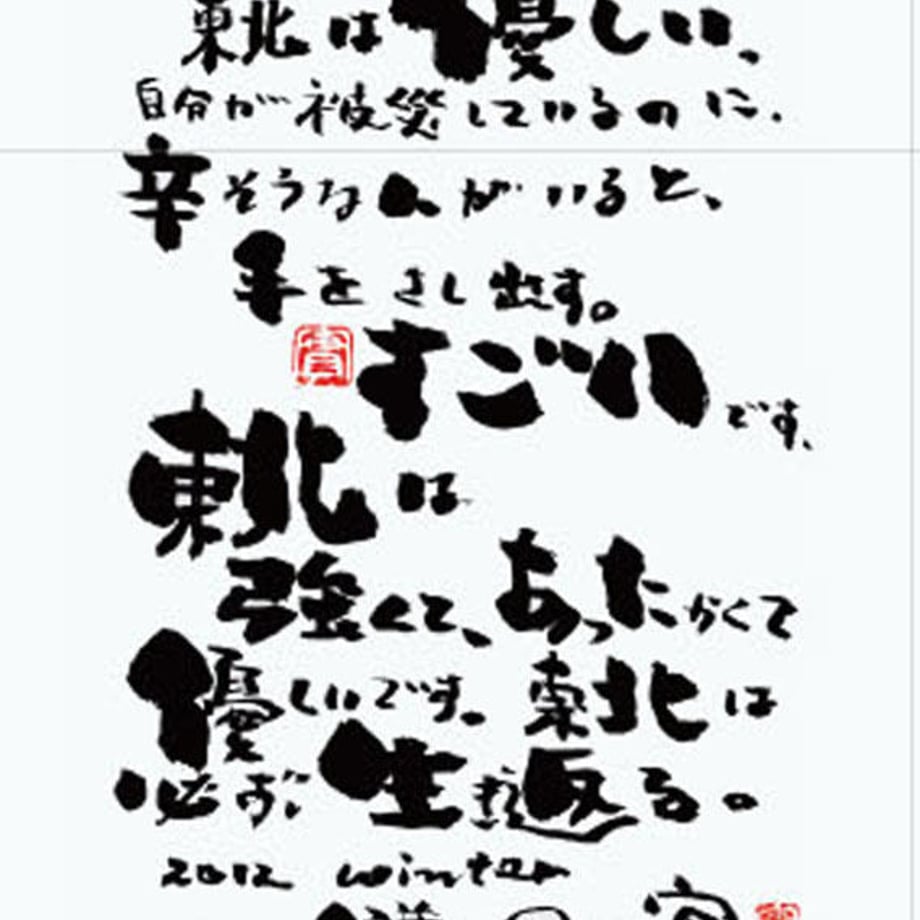 東北は優しい、
自分が被災しているのに、
辛そうな人がいると、
手をさし出す。
すごいです、
東北は
強くて、あったかくて
優しいです。東北は
必ず生き返る。
2012 winter